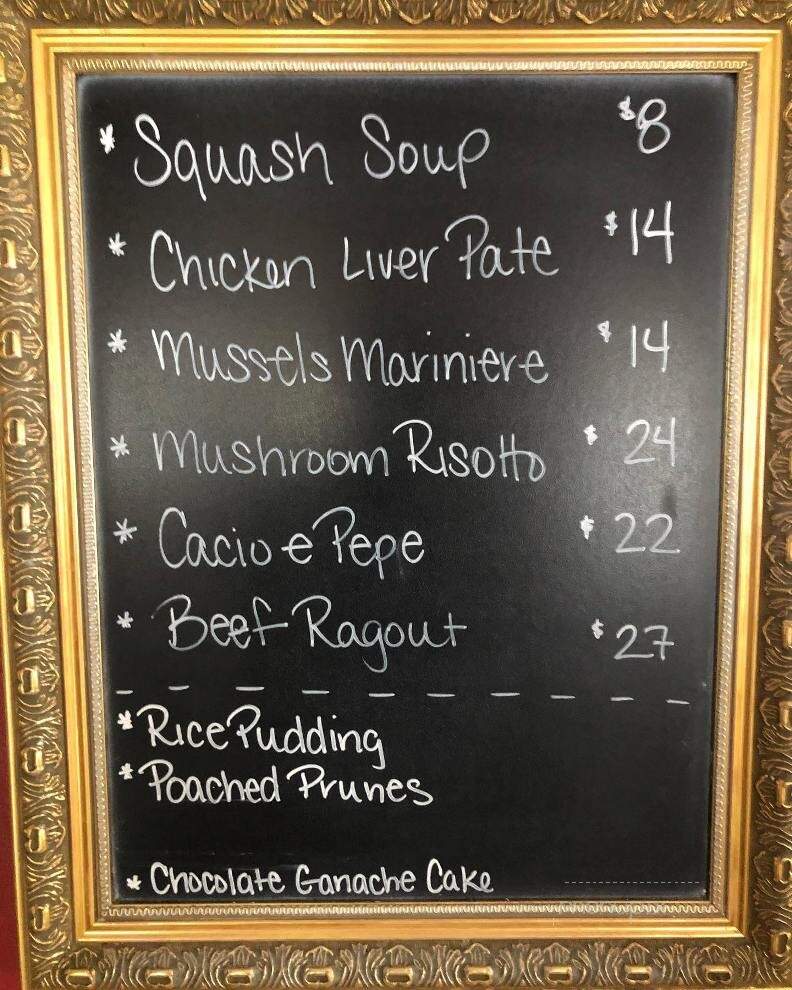 * Squash Soup $8
* Chicken Liver Pate $14
* Mussels Mariniere $14
* Mushroom Risotto $24
* Cacio e Pepe $22
* Beef Ragout $27
* Rice Pudding
* Poached Prunes
* Chocolate Ganache Cake